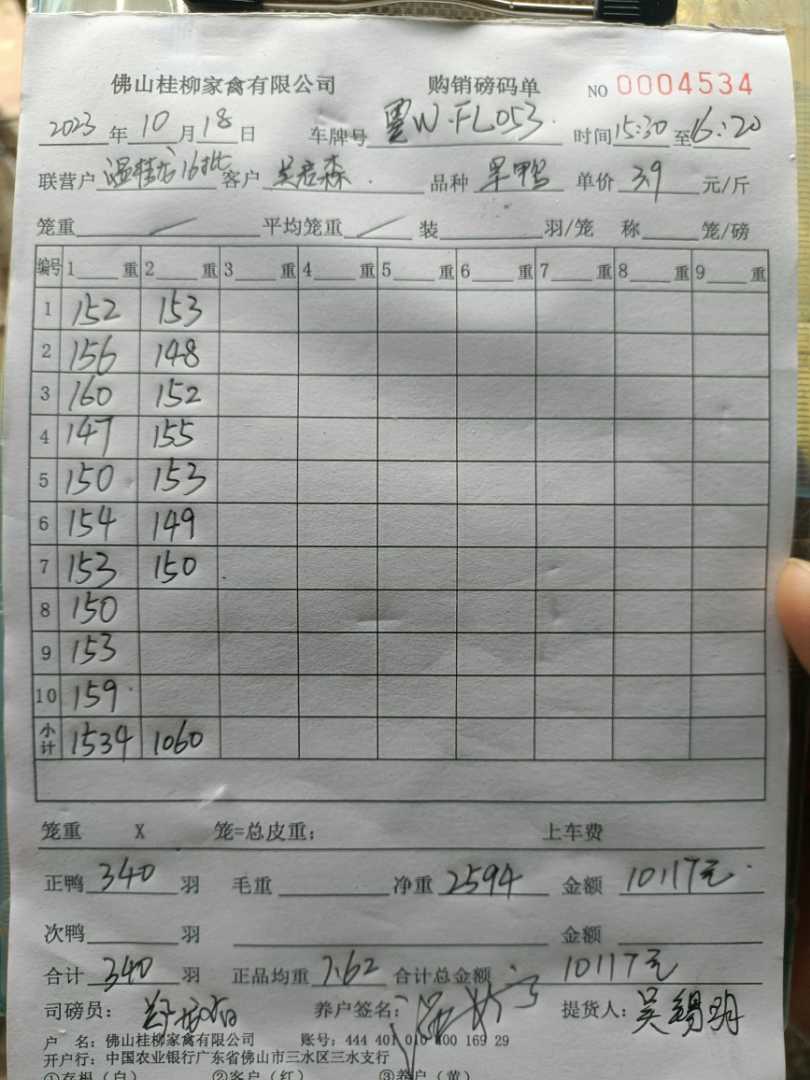 佛山桂柳家禽有限公司 购销磅码单 NO 0004534
2023年10月18日 车牌号 粤W·FL053 时间15:30至16:20
联营户 温桂龙16批 客户 品种 单价 3.9 元/斤
笼重 平均笼重 装 羽/笼 称 笼/磅
编号 1 重 2 重 3 重 4 重 5 重 6 重 7 重 8 重 9 重
1 152 153
2 156 148
3 160 152
4 147 155
5 150 153
6 154 149
7 153 150
8 150
9 153
10 159
小计 1534 1060
笼重 X 笼=总皮重; 上车费
正鸭 340 羽 毛重 净重 2594 金额 10117元
次鸭 羽 金额
合计 340 羽 正品均重 7.62 合计总金额 10117元
司磅员: 养户签名: 提货人: 吴锡明
户 名: 佛山桂柳家禽有限公司 账号: 444 401 010 400 169 29
开户行: 中国农业银行广东省佛山市三水区三水支行
①存根(白) ②客户(红) ③养户(黄)